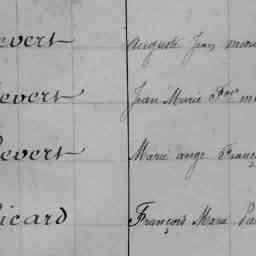 evert Auguste Jean marie
evert Jean Marie Fois m
evert Marie ange Franç
icard François Marie Pa